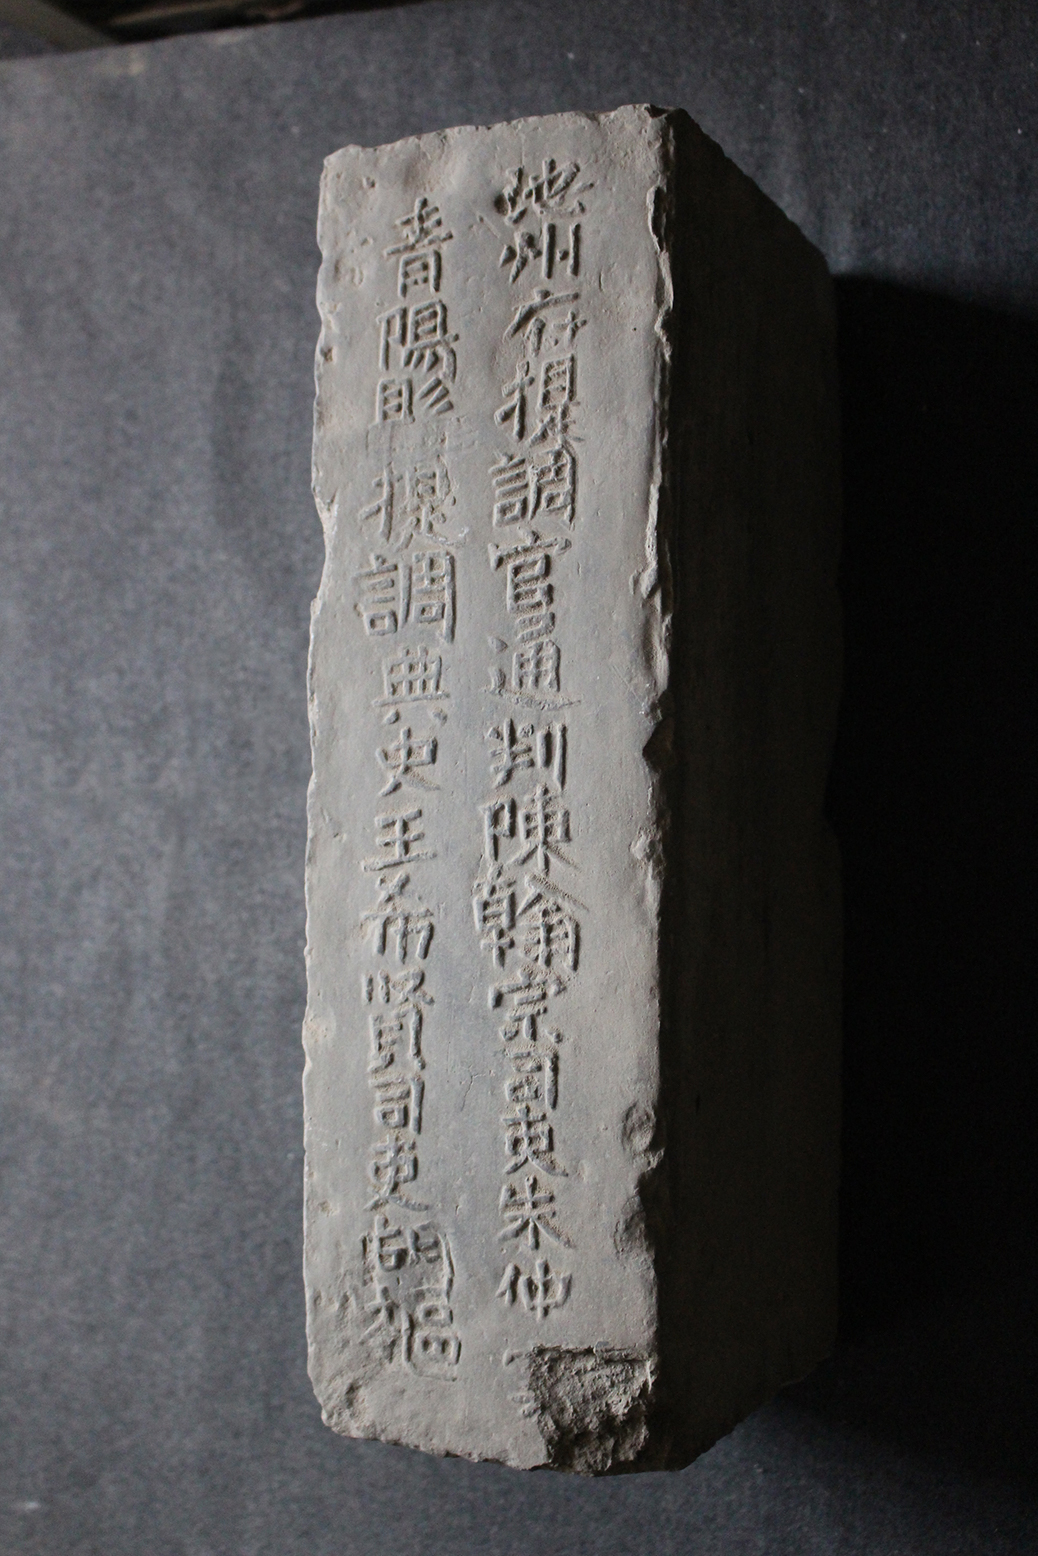 池州府提調官通判陳翰宗司吏朱仲
青陽縣提調典史王希賢司吏福